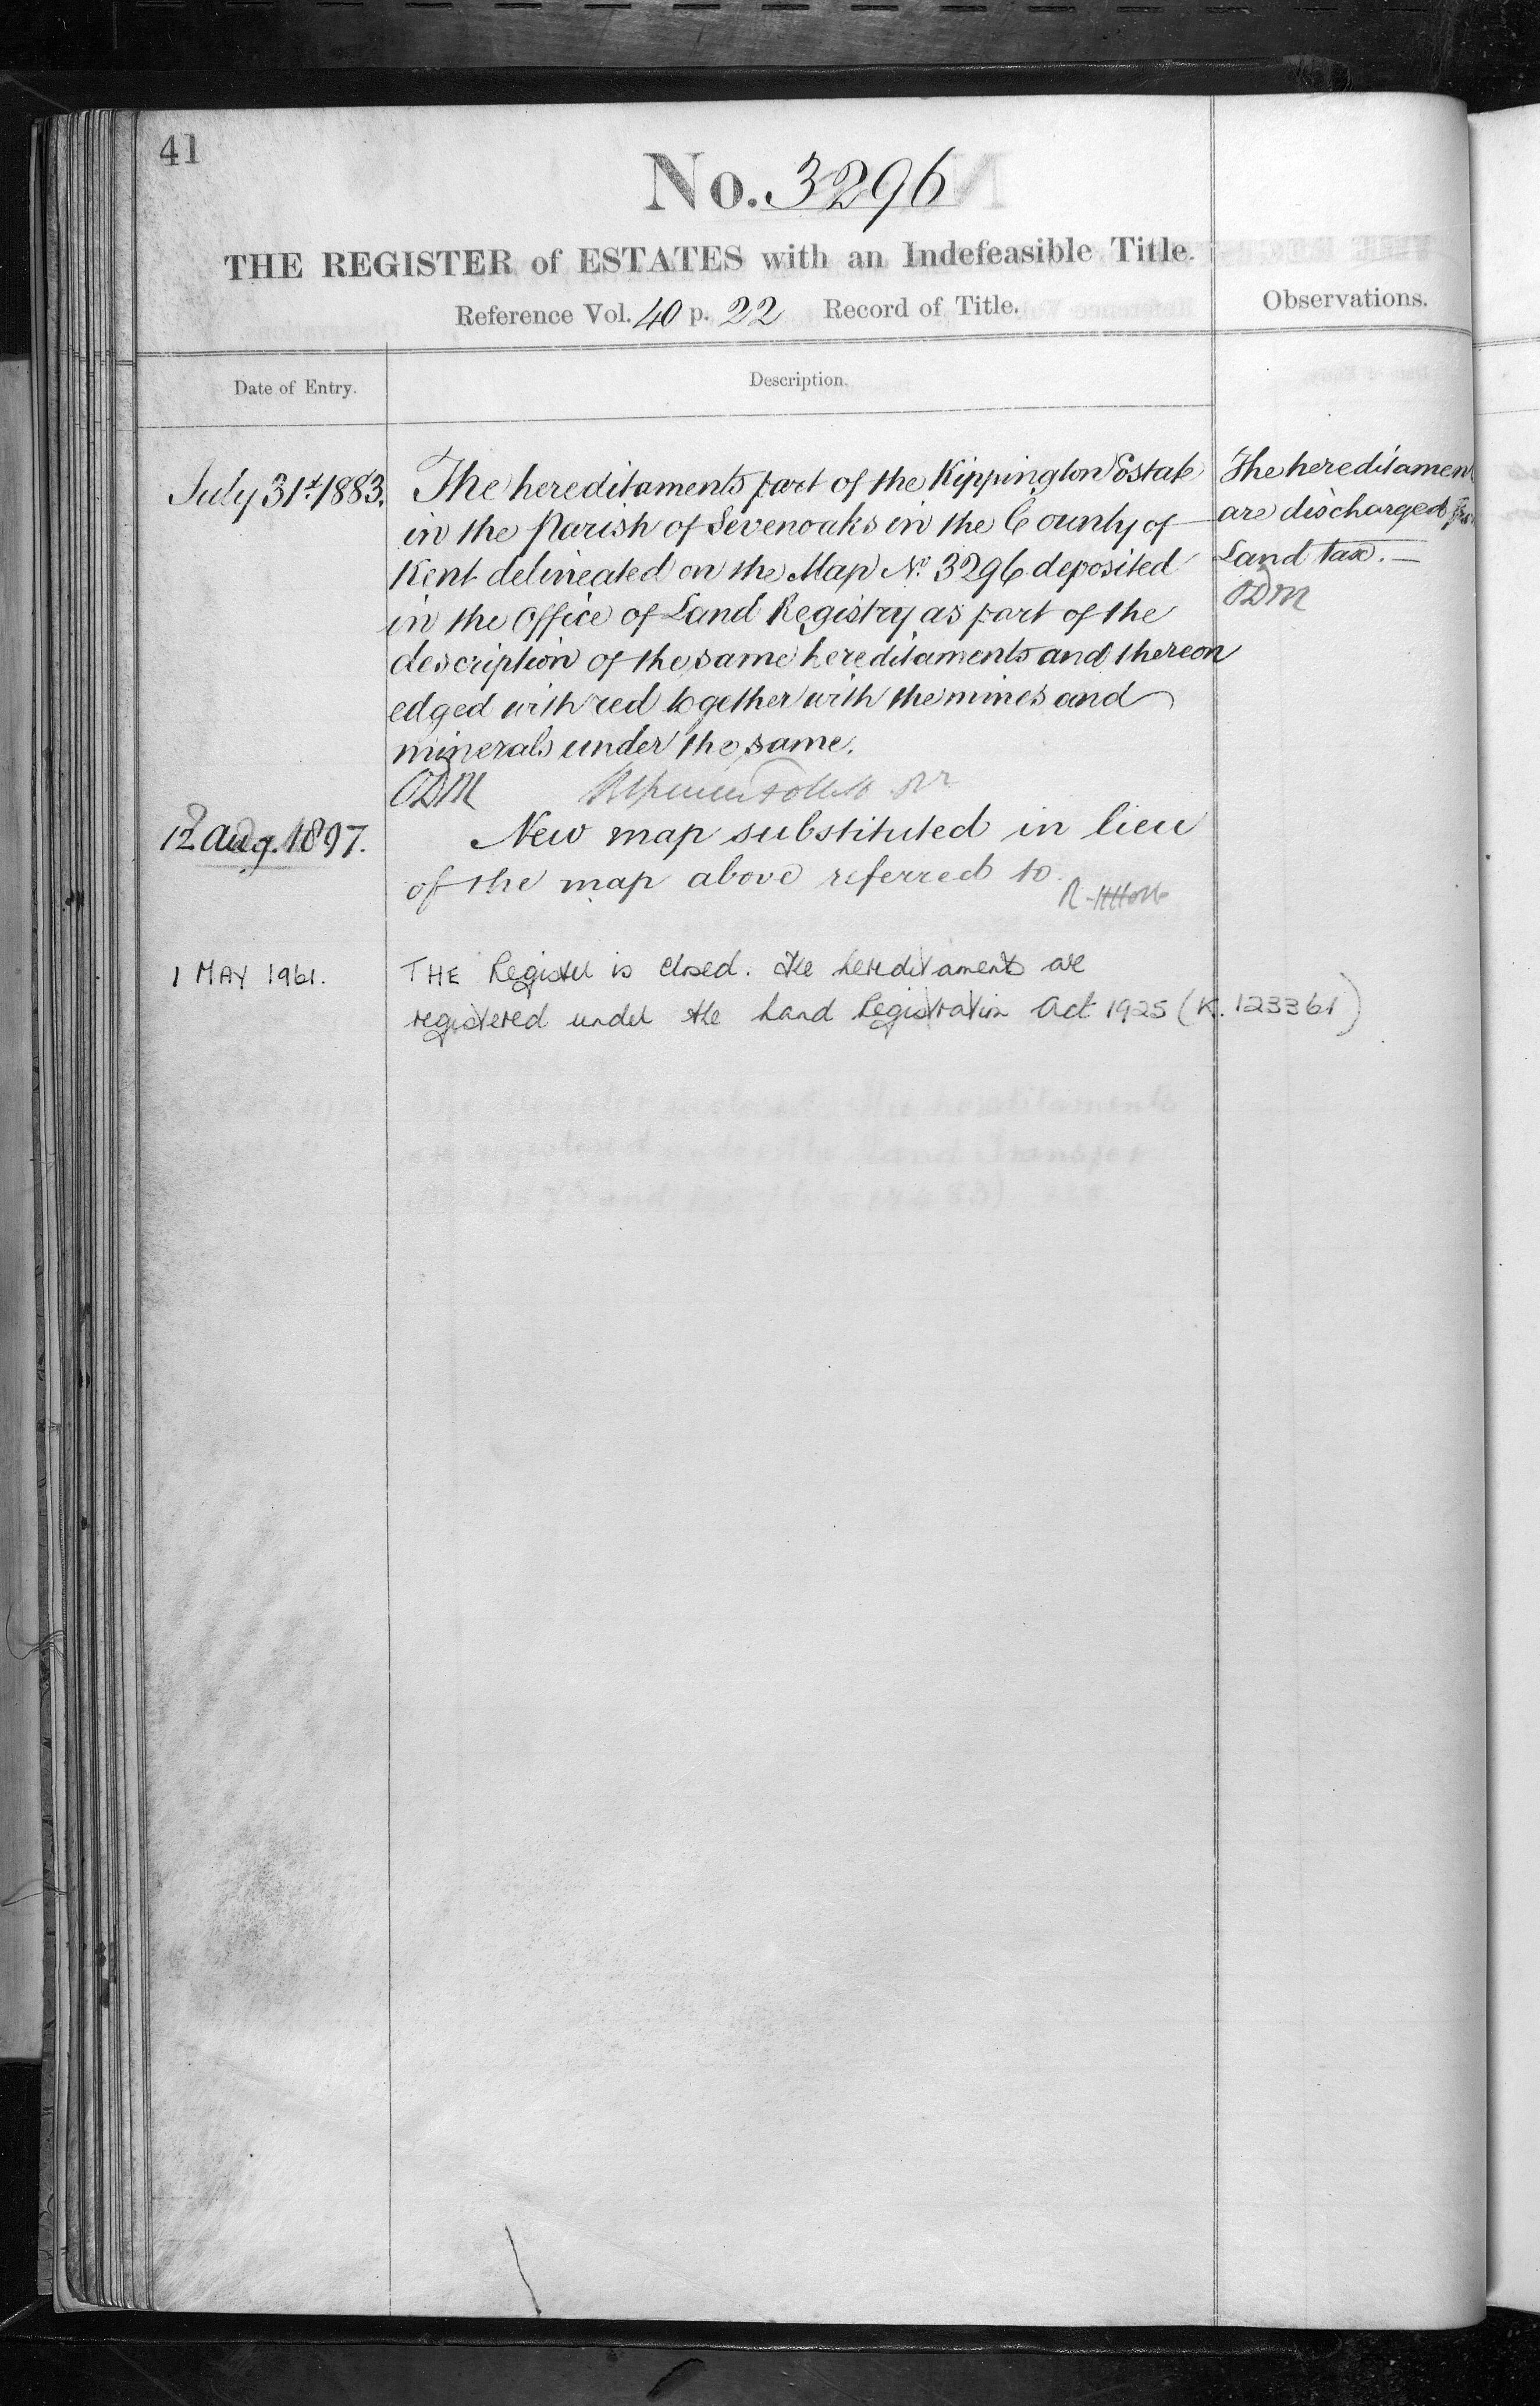 41
No. 3296
THE REGISTER of ESTATES with an Indefeasible Title.
Reference Vol. 40 p. 22 Record of Title.
Observations.
Date of Entry.
Description.
July 31st 1883.
The hereditaments part of the Kippington Estate
in the Parish of Sevenoaks in the County of
Kent delineated on the Map No. 3296 deposited
in the Office of Land Registry as part of the
description of the same hereditaments and thereon
edged with red together with the mines and
minerals under the same.
ODM
The hereditamen
are discharged
Land tax. —
ODM
12 Aug. 1897.
New map substituted in lieu
of the map above referred to
1 MAY 1961.
THE Register is closed. The hereditaments are
registered under the Land Registration Act 1925 (K. 123361)